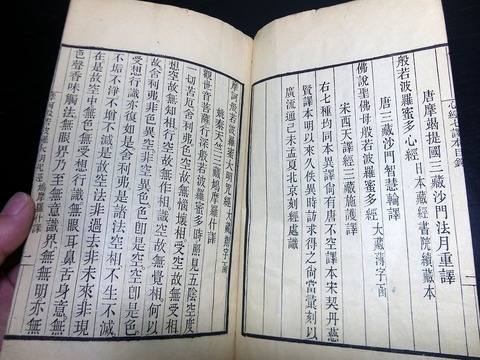 心經七譯本目錄
二
唐摩竭提國三藏沙門法月重譯
般若波羅蜜多心經 日本藏經書院續藏本
唐三藏沙門智慧輪譯
佛說聖佛母般若波羅蜜多經 大藏薄字函
宋西天譯經三藏施護譯
右七種均同本異譯尙有唐不空譯本宋契丹慈
賢譯本明以來久佚異時訪求得之尙當彙刻以
廣流通己未孟夏北京刻經處識
摩訶般若波羅蜜大明咒經 大藏字函
姚秦天竺三藏鳩摩羅什譯
觀世音菩薩行深般若波羅蜜多時照見五陰空度
一切苦厄舍利弗色空故無惱壞相受空故無受相
想空故無知相行空故無作相識空故無覺相何以
故舍利弗非色異空非空異色色卽是空空卽是色
受想行識亦復如是舍利弗是諸法空相不生不滅
不垢不淨不增不減是空法非過去非未來非現
在是故空中無色無受想行識無眼耳鼻舌身意無
色聲香味觸法無眼界乃至無意識界無無明亦無
大明咒經 鳩摩羅什譯
一